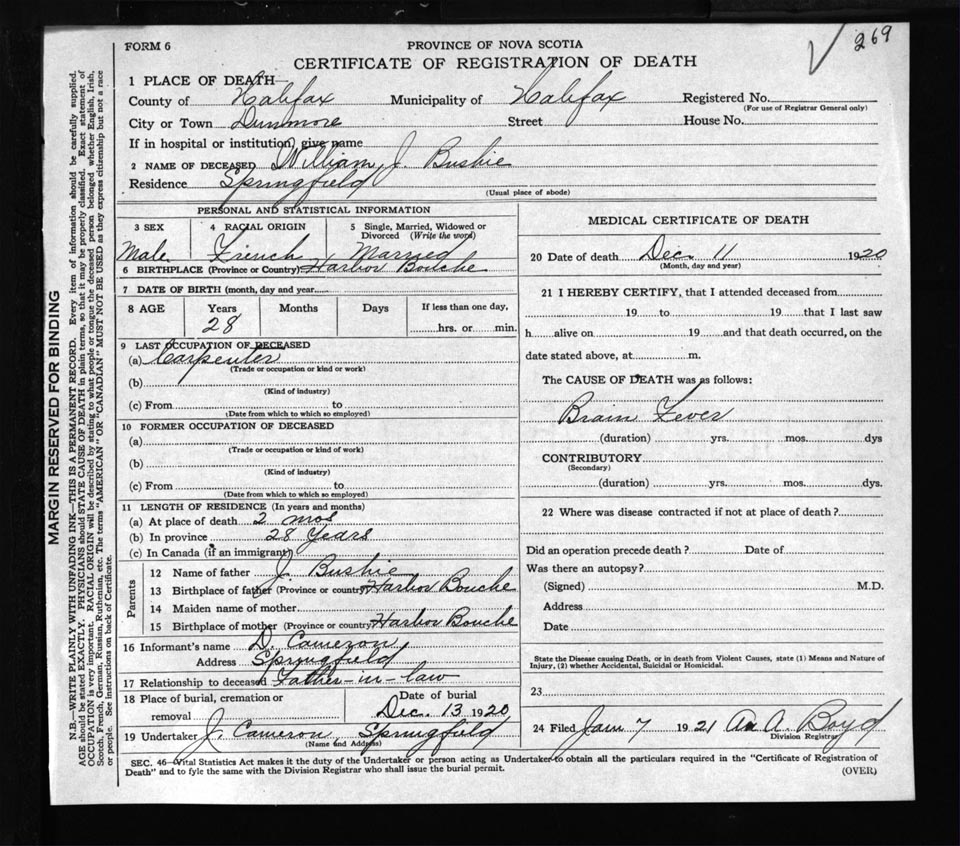 269
FORM 6
PROVINCE OF NOVA SCOTIA
CERTIFICATE OF REGISTRATION OF DEATH
1 PLACE OF DEATH—
County of Halifax Municipality of Halifax Registered No.
(For use of Registrar General only)
City or Town Dunmore Street House No.
If in hospital or institution, give name
2 NAME OF DECEASED William J. Bushie
Residence Springfield
(Usual place of abode)
PERSONAL AND STATISTICAL INFORMATION
3 SEX
Male
4 RACIAL ORIGIN
French
5 Single, Married, Widowed or
Divorced (Write the word)
Married
6 BIRTHPLACE (Province or Country) Harbor Bouche
7 DATE OF BIRTH (month, day and year
8 AGE Years Months Days If less than one day,
28 hrs. or min.
9 LAST OCCUPATION OF DECEASED
(a) Carpenter
(Trade or occupation or kind or work)
(b)
(Kind of industry)
(c) From to
(Date from which to which so employed)
10 FORMER OCCUPATION OF DECEASED
(a)
(Trade or occupation or kind of work)
(b)
(Kind of industry)
(c) From to
(Date from which to which so employed)
11 LENGTH OF RESIDENCE (In years and months)
(a) At place of death 2 mos
(b) In province 28 Years
(c) In Canada (if an immigrant)
Parents
12 Name of father J. Bushie
13 Birthplace of father (Province or country) Harbor Bouche
14 Maiden name of mother
15 Birthplace of mother (Province or country) Harbor Bouche
16 Informant's name D. Cameron
Address Springfield
17 Relationship to deceased Father-in-law
18 Place of burial, cremation or
removal
Date of burial
Dec. 13 1920
19 Undertaker J. Cameron, Springfield
(Name and Address)
MEDICAL CERTIFICATE OF DEATH
20 Date of death Dec. 11 1920
(Month, day and year)
21 I HEREBY CERTIFY, that I attended deceased from
19 to 19 that I last saw
h alive on 19 and that death occurred, on the
date stated above, at m.
The CAUSE OF DEATH was as follows:
Brain Fever
(duration) yrs. mos. dys
CONTRIBUTORY
(Secondary)
(duration) yrs. mos. dys.
22 Where was disease contracted if not at place of death?
Did an operation precede death? Date of
Was there an autopsy?
(Signed) M.D.
Address
Date
State the Disease causing Death, or in death from Violent Causes, state (1) Means and Nature of
Injury, (2) whether Accidental, Suicidal or Homicidal.
23
24 Filed Jan 7 1921 A. Boyd
Division Registrar
SEC. 46—Vital Statistics Act makes it the duty of the Undertaker or person acting as Undertaker to obtain all the particulars required in the "Certificate of Registration of
Death" and to fyle the same with the Division Registrar who shall issue the burial permit.
(OVER)
MARGIN RESERVED FOR BINDING
N.B.—WRITE PLAINLY WITH UNFADING INK—THIS IS A PERMANENT RECORD. Every item of information should be carefully supplied.
AGE should be stated EXACTLY. PHYSICIANS should STATE CAUSE OF DEATH in plain terms, so that it may be properly classified. Exact statement of
OCCUPATION is very important. RACIAL ORIGIN will be described by stating to what people or tongue the deceased person belonged whether English, Irish,
Scotch, French, German, Russian, Ruthenian, etc. The terms "AMERICAN" OR "CANADIAN" MUST NOT BE USED as they express citizenship but not a race
or people. See instructions on back of Certificate.